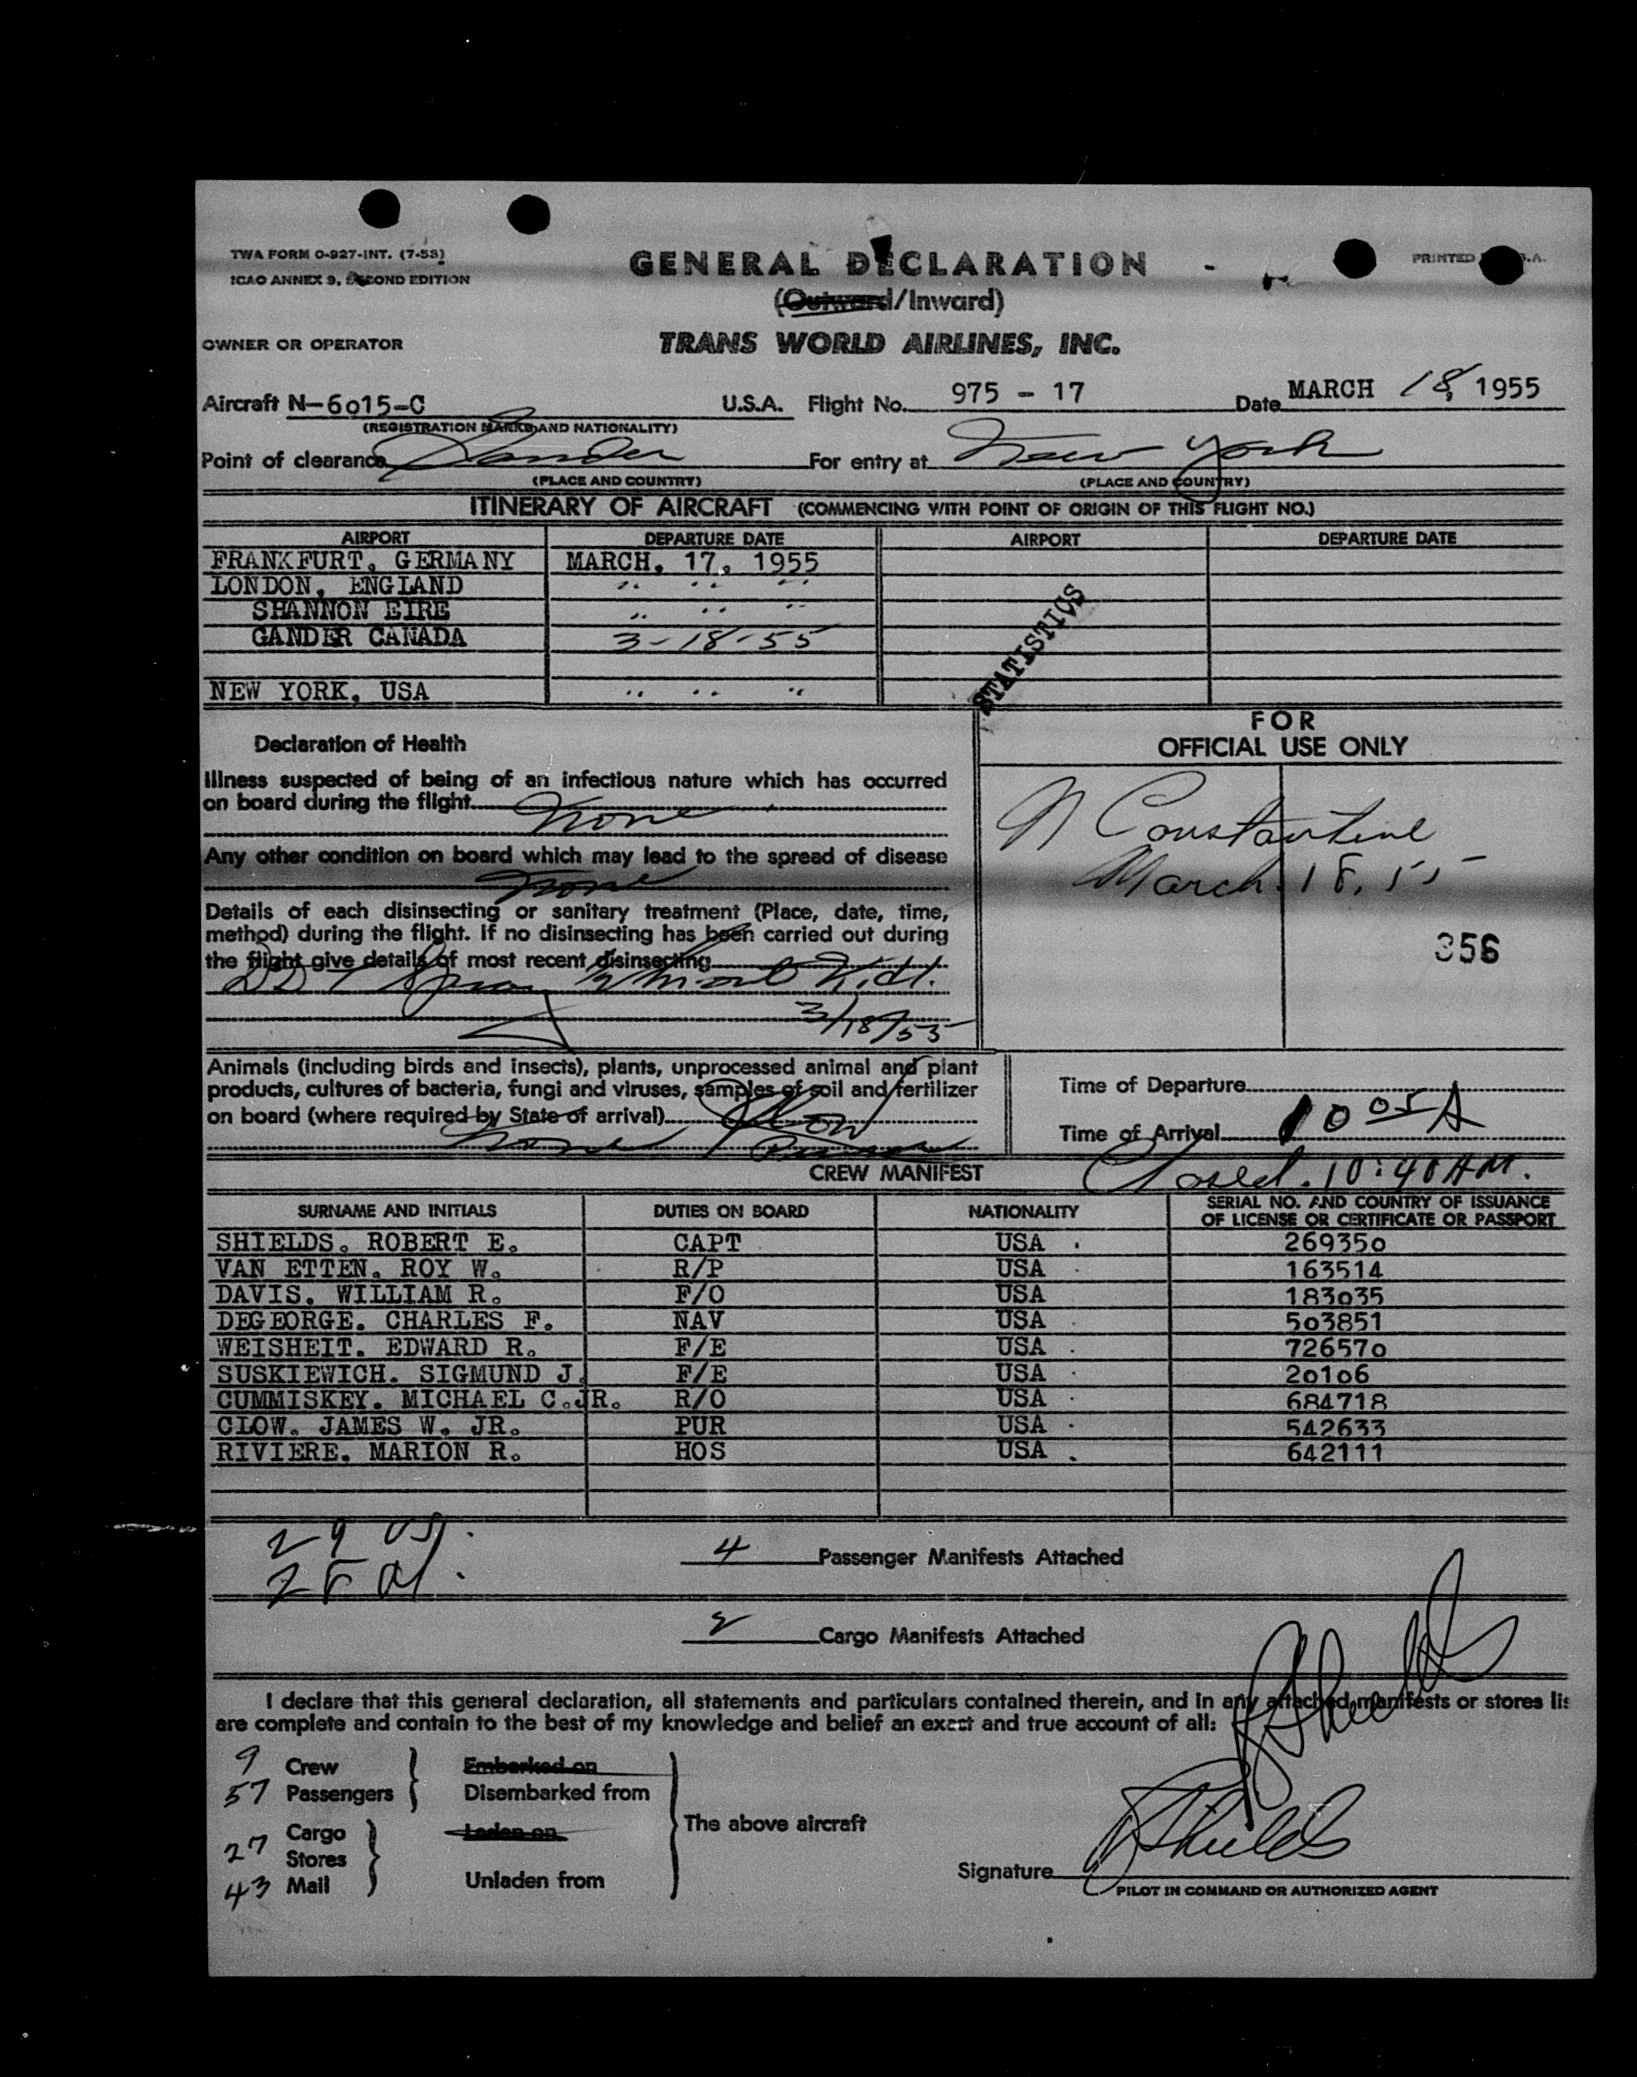 TWA FORM O-927-INT. (7-53)
ICAO ANNEX 9, SECOND EDITION
GENERAL DECLARATION
PRINTED U.S.A.
(Outward/Inward)
OWNER OR OPERATOR
TRANS WORLD AIRLINES, INC.
Aircraft N-6015-C U.S.A. Flight No. 975 - 17 Date MARCH 18, 1955
(REGISTRATION MARKS AND NATIONALITY)
Point of clearance Gander For entry at New York
(PLACE AND COUNTRY) (PLACE AND COUNTRY)
ITINERARY OF AIRCRAFT (COMMENCING WITH POINT OF ORIGIN OF THIS FLIGHT NO.)
AIRPORT DEPARTURE DATE AIRPORT DEPARTURE DATE
FRANKFURT, GERMANY MARCH. 17. 1955
LONDON, ENGLAND " " "
SHANNON EIRE " " "
GANDER CANADA 3-18-55
NEW YORK, USA " " "
STATISTICS
Declaration of Health
Illness suspected of being of an infectious nature which has occurred
on board during the flight. None
Any other condition on board which may lead to the spread of disease
None
Details of each disinsecting or sanitary treatment (Place, date, time,
method) during the flight. If no disinsecting has been carried out during
the flight give details of most recent disinsecting
DDT Spray
3/18/55
FOR
OFFICIAL USE ONLY
N Constantine
March. 18, 55
356
Animals (including birds and insects), plants, unprocessed animal and plant
products, cultures of bacteria, fungi and viruses, samples of soil and fertilizer
on board (where required by State of arrival) Clow
None Purser
Time of Departure
Time of Arrival 10 05 A
Closed. 10:40 AM.
CREW MANIFEST
SURNAME AND INITIALS DUTIES ON BOARD NATIONALITY SERIAL NO. AND COUNTRY OF ISSUANCE OF LICENSE OR CERTIFICATE OR PASSPORT
SHIELDS. ROBERT E. CAPT USA 269350
VAN ETTEN. ROY W. R/P USA 163514
DAVIS. WILLIAM R. F/O USA 183035
DEGEORGE. CHARLES F. NAV USA 503851
WEISHEIT. EDWARD R. F/E USA 726570
SUSKIEWICH. SIGMUND J. F/E USA 20106
CUMMISKEY. MICHAEL C.JR. R/O USA 684718
CLOW. JAMES W. JR. PUR USA 542633
RIVIERE. MARION R. HOS USA 642111
29 US.
28 Al.
4 Passenger Manifests Attached
2 Cargo Manifests Attached
I declare that this general declaration, all statements and particulars contained therein, and in any attached manifests or stores lis
are complete and contain to the best of my knowledge and belief an exact and true account of all:
9 Crew Embarked on
57 Passengers Disembarked from
The above aircraft
27 Cargo Laden on
Stores
43 Mail Unladen from
Signature R Shields
PILOT IN COMMAND OR AUTHORIZED AGENT